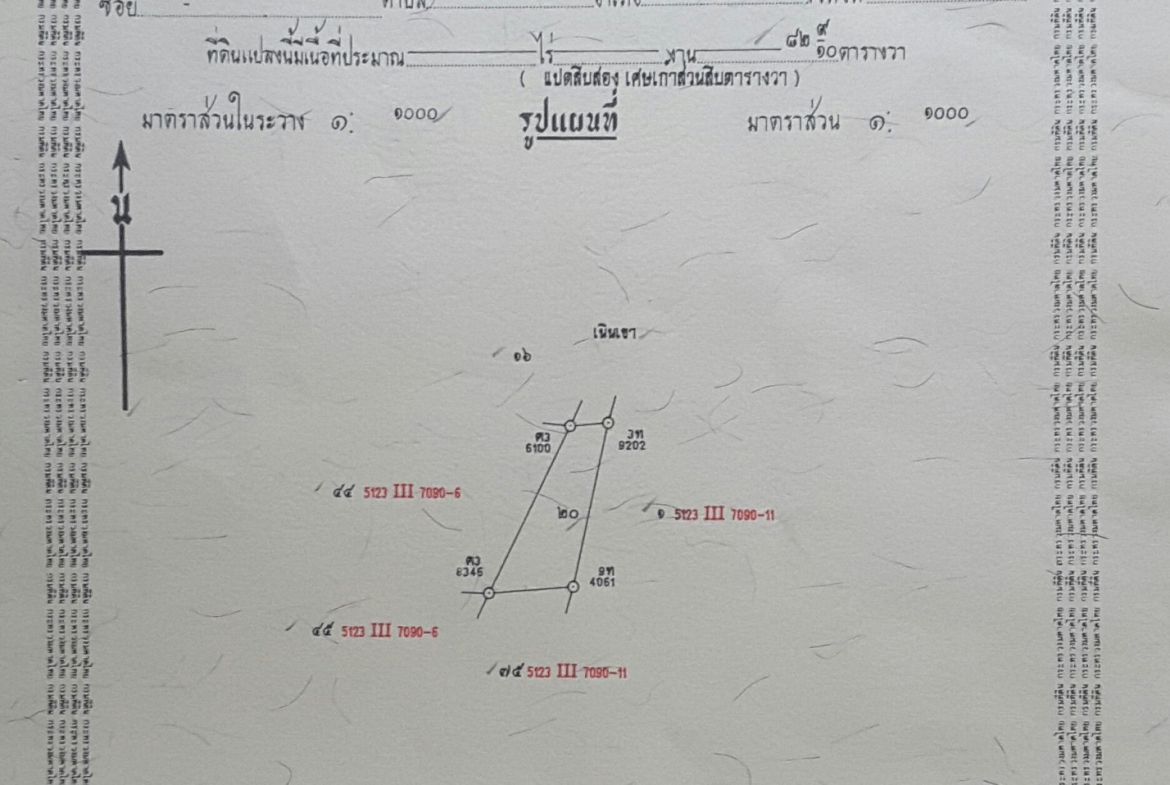 ซอย - ตำบล
ที่ดินแปลงนี้มีเนื้อที่ประมาณ ไร่ งาน ๘๒ ๙/๑๐ ตารางวา
( แปดสิบสอง เศษเก้าส่วนสิบตารางวา )
มาตราส่วนในระวาง ๑: ๑๐๐๐ รูปแผนที่ มาตราส่วน ๑: ๑๐๐๐
น
เนินเขา
๑๖
6100
3ท
9202
๔๔ 5123 III 7090-6
๒๐
๑ 5123 III 7090-11
8346
9ท
4061
๔๕ 5123 III 7090-6
๗๕ 5123 III 7090-11